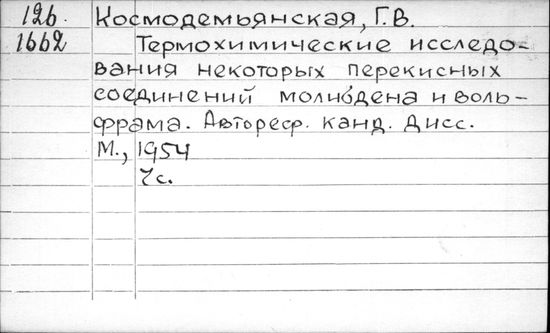 126. Космодемьянская, Г.В.
1662 Термохимические исследо-
вания некоторых перекисных
соединений молибдена и воль-
фрама. Автореф. канд. дисс.
М., 1954
7с.